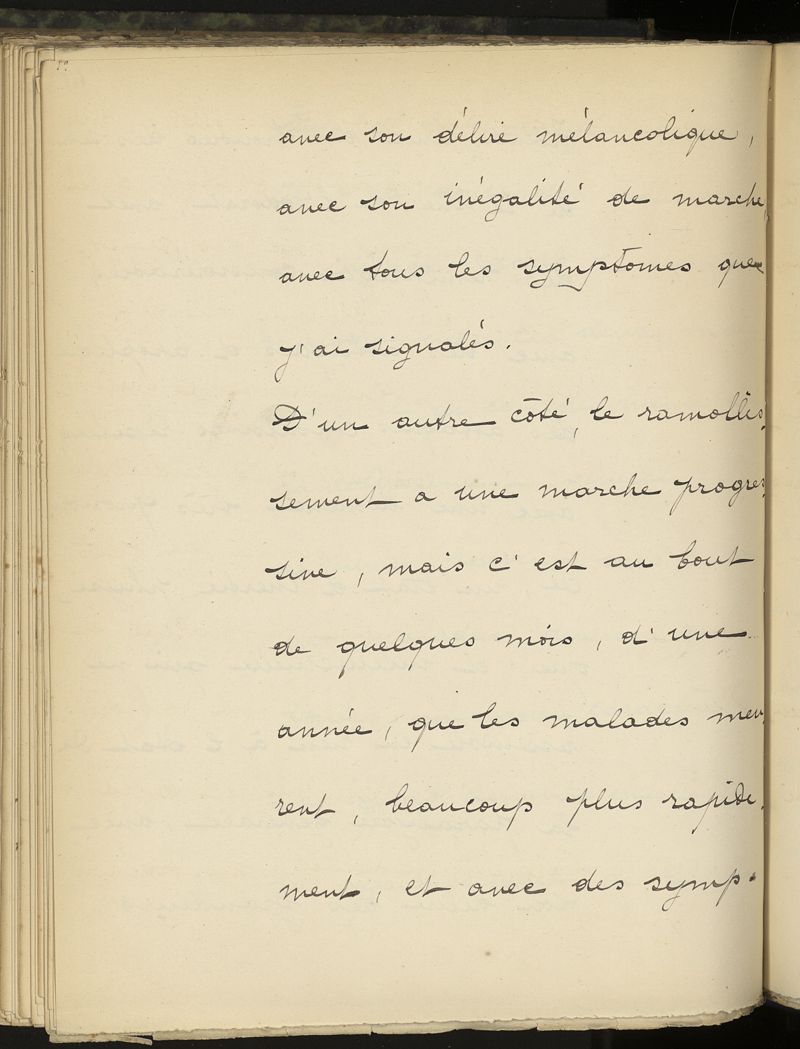 avec son délire mélancolique,
avec son inégalité de marche,
avec tous les symptomes que
j'ai signalés.
D'un autre côté, le ramollis-
sement a une marche progres-
sive, mais c'est au bout
de quelques mois, d'une
année, que les malades meu-
rent, beaucoup plus rapide-
ment, et avec des symp-